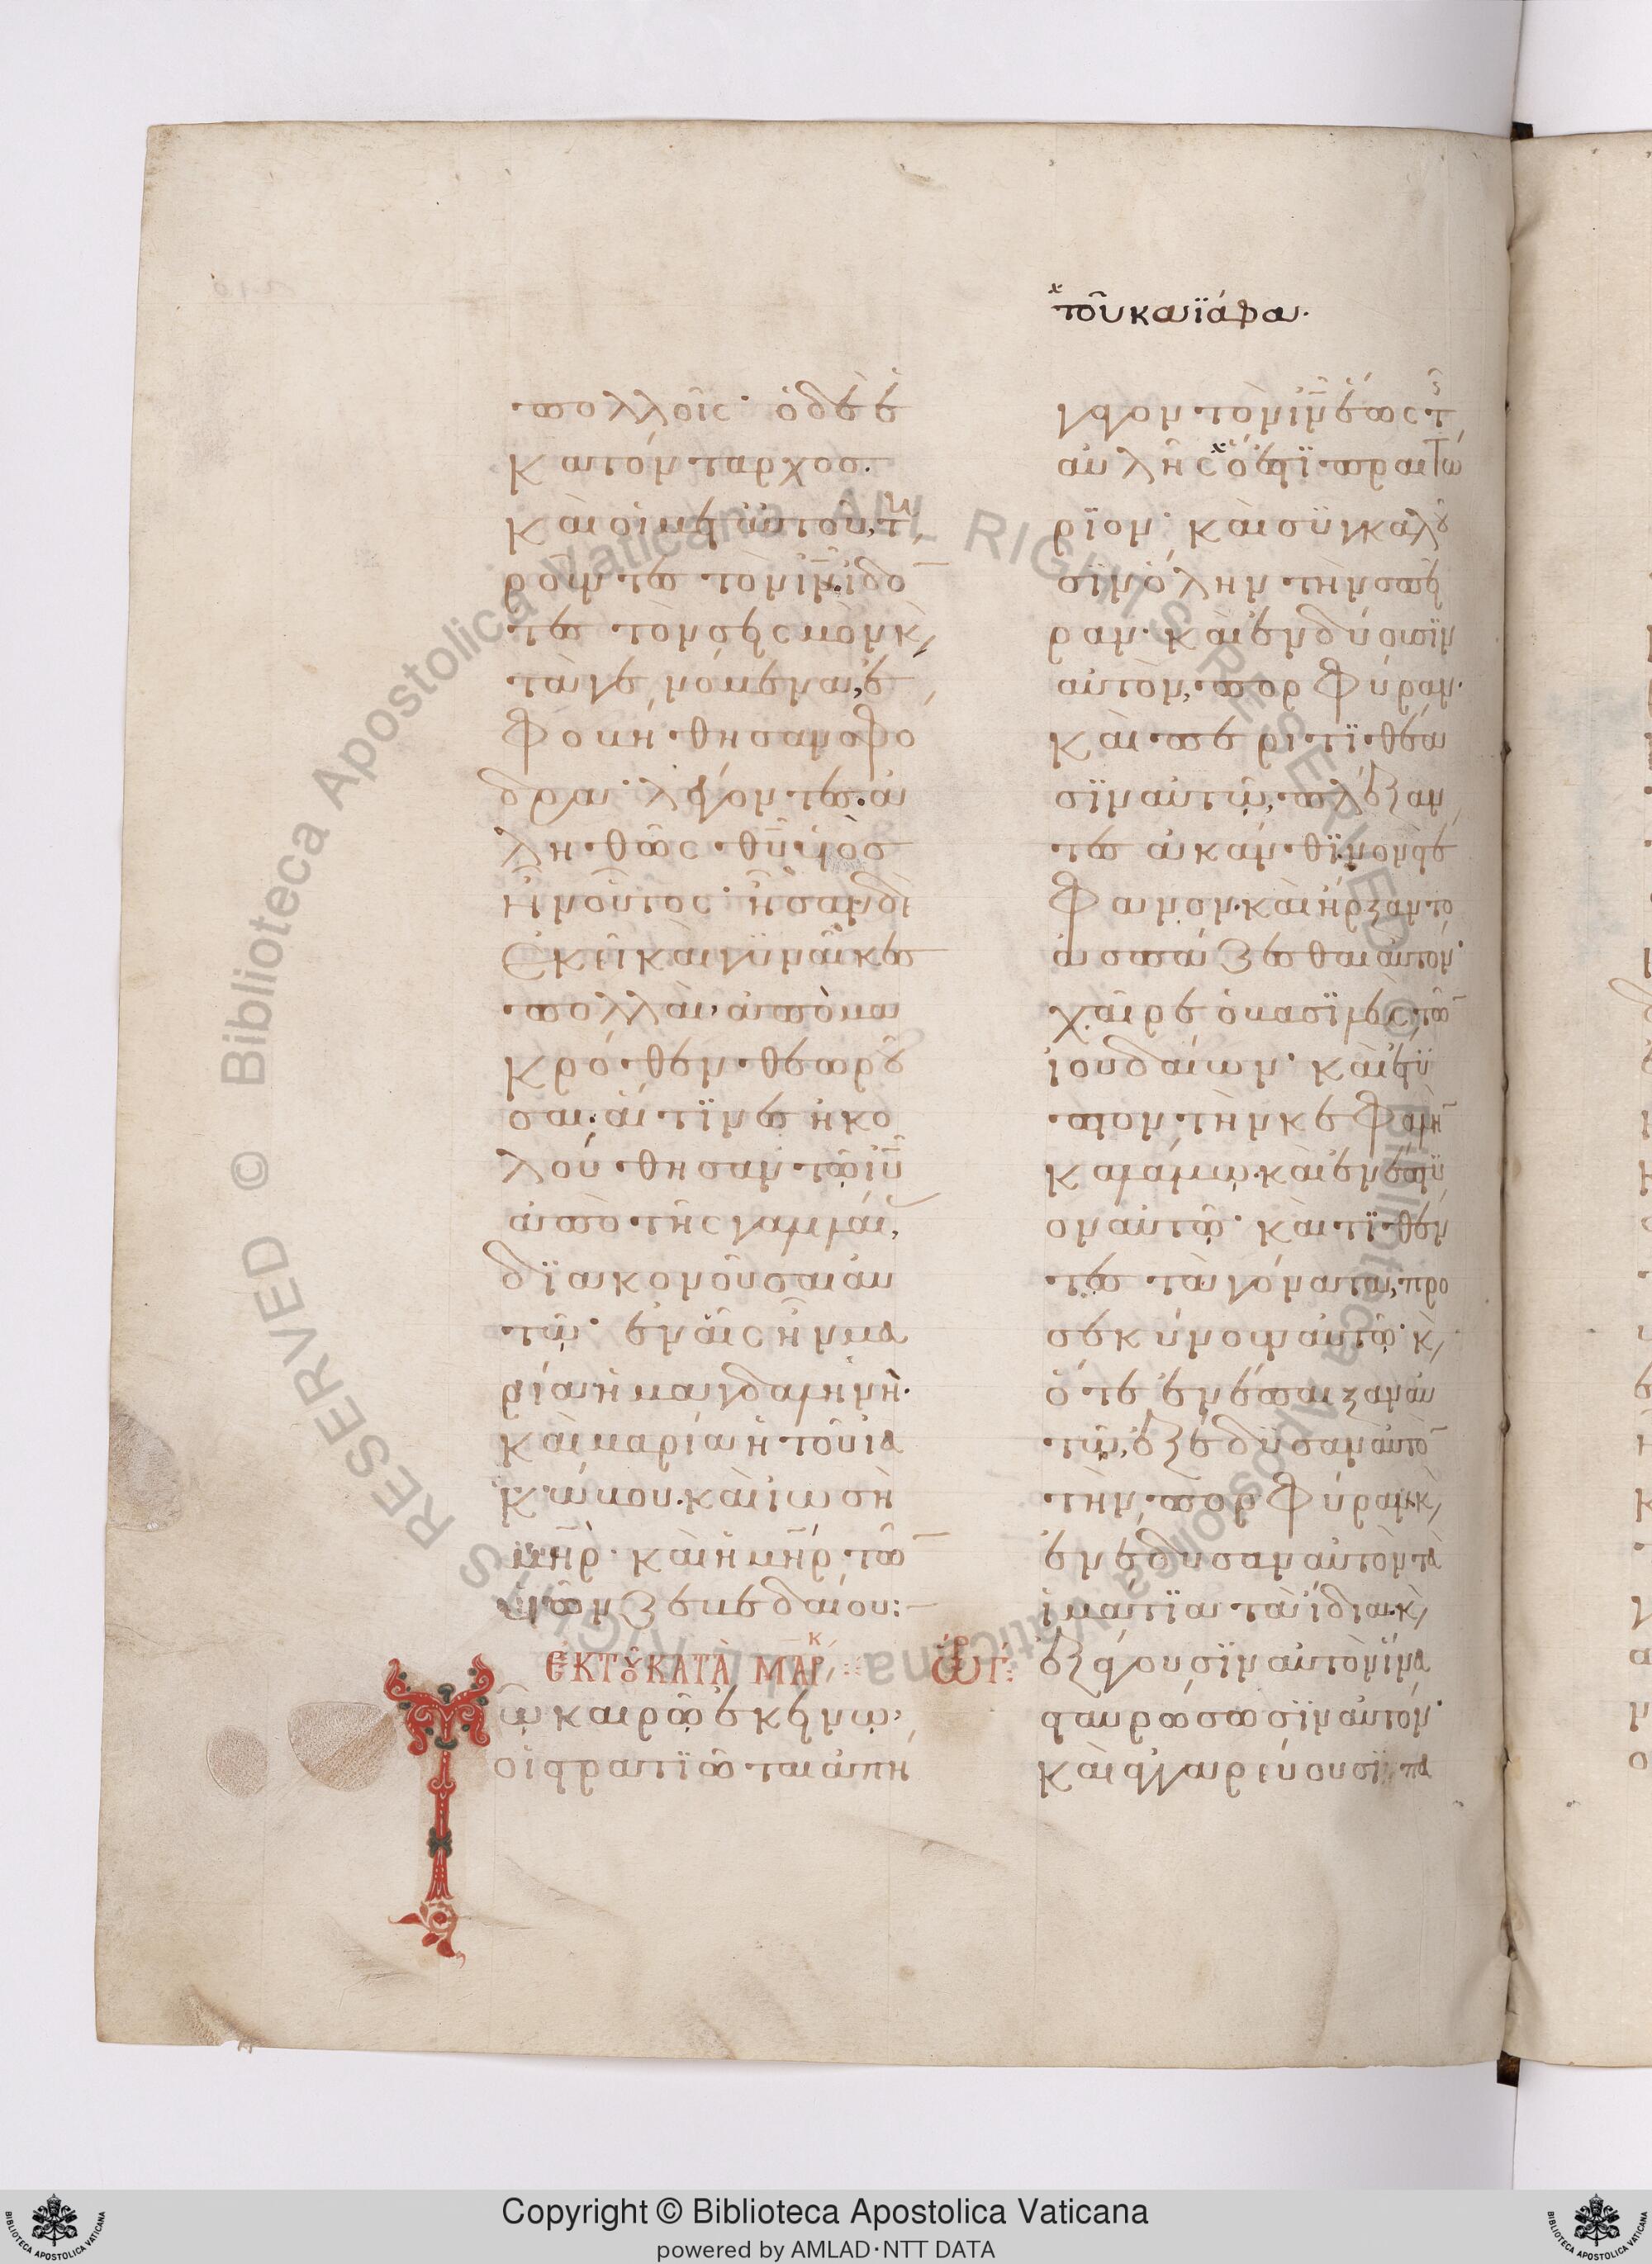 τοῦ καϊάφα·
πολλοῖς· ὁ δὲ ἑ
κατόνταρχοσ.
καὶ οἱ μετ αὐτοῦ, τη
ροῦντες τὸν ιν̅ ἰδό
τες τὸν σεισμὸν κ,
τὰ γενόμενα, ἐ
φοβήθησαν σφό
δρα· λέγοντες· ἀ
ληθῶς θυ̅ υἱὸσ
ἦν οὗτος· ἦσαν δὲ
ἐκεῖ καὶ γυναῖκες
πολλαὶ, ἀπὸ μα
κρόθεν θεωροῦ
σαι· αἵτινες ἠκο
λούθησαν τῶ ιυ̅
ἀπὸ τῆς γαλιλαί,
διακονοῦσαι αὐ
τῶ· ἐν αἷς ἦν μα
ρία ἡ μαγδαληνὴ·
καὶ μαρία ἡ τοῦ ἰα
κώβου· καὶ ἰωσὴ
μη̅ρ· καὶ ἡ μη̅ρ τῶ
υἱῶν ζεβεδαίου:
ἐκ τοῦ κατὰ μάρκ, ὥρ γ:
Τῶ καιρῶ ἐκείνω,
οἱ στρατιῶται ἀπή
γαγον τὸν ιν̅ ἔως τ
αὐλῆς ὅ ἐστι πραιτώ
ριον· καὶ συγκαλοῦ
σιν ὅλην τὴν σπεῖ
ραν· καὶ ἐνδύουσιν
αὐτὸν, πορφύραν·
καὶ περιτιθέα
σιν αὐτῶ, πλέξαν
τες ἀκάνθινον στέ
φανον· καὶ ἤρξαντο
ἀσπάζεσθαι αὐτόν·
χαῖρε ὁ βασιλεὺς τῶ
ἰουδαίων· καὶ ἔτυ
πτον τὴν κεφαλὴ
καλάμω· καὶ ἐνέπτυ
ον αὐτῶ· καὶ τιθέν
τες τὰ γόνατα, προ
σεκύνουν αὐτῶ· κ,
ὅτε ἐνέπαιξαν αὐ
τῶ, ἐξέδυσαν αὐτὸ
τὴν πορφύραν· κ,
ἐνέδυσαν αὐτὸν τὰ
ἱμάτια τὰ ἴδια· κ,
ἐξάγουσιν αὐτὸν ἵνα
σταυρώσωσιν αὐτόν·
καὶ ἀγγαρεύουσι πα
Copyright © Biblioteca Apostolica Vaticana
powered by AMLAD·NTT DATA
Biblioteca Apostolica Vaticana ALL RIGHTS RESERVED ©